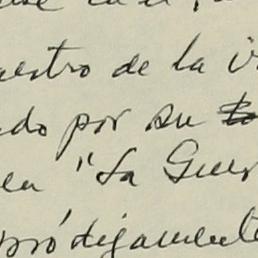 estro de la
do por su
en "La Guer
pródigamente